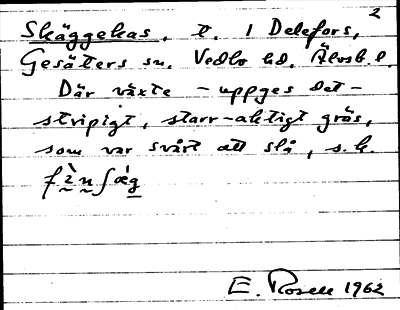 2
Skäggekas, t. 1 Delefors,
Gesäters sn. Vedbo hd. Älvsb. l.
Där växte – uppges det –
stripigt, starr-aktigt gräs,
som var svårt att slå, s.k.
E. Rosell 1962